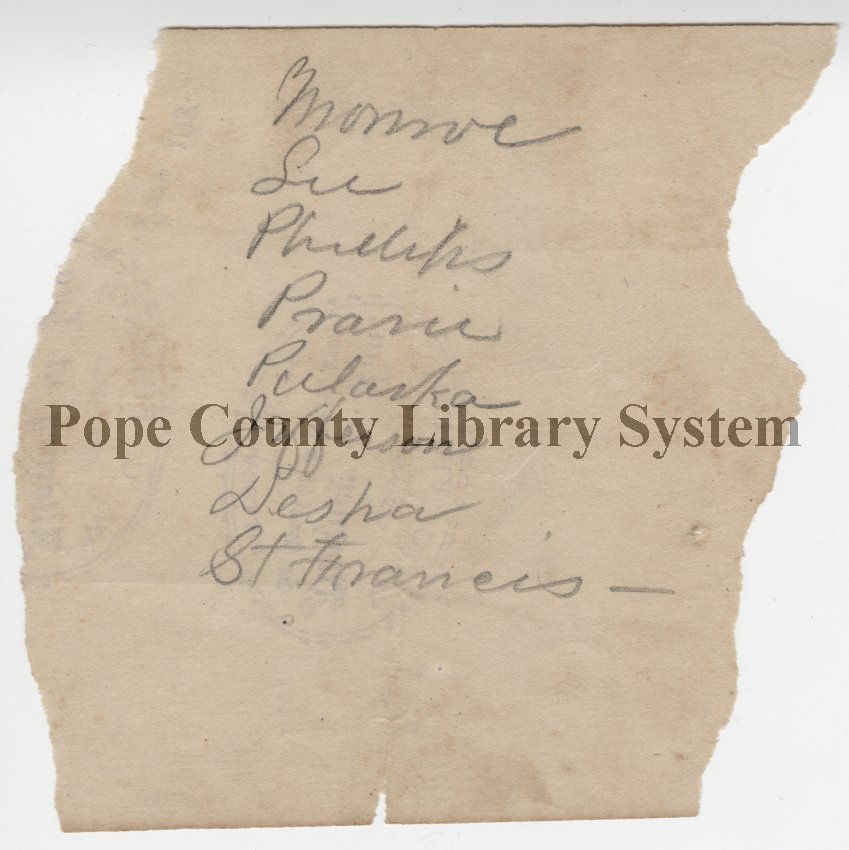 Monroe
Lee
Phillips
Prarie
Pulaska
Jefferson
Pope County Library System
Desha
St Francis —